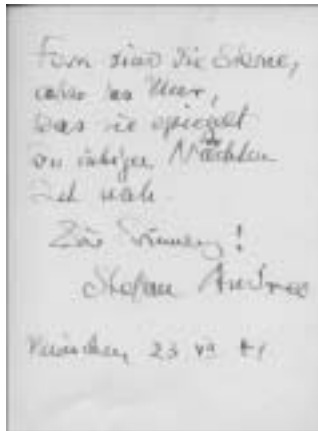 Fern sind die Sterne,
aber das Meer,
das sie spiegelt
in ruhigen Nächten
ist nah.
Zur Erinnerung!
Stefan Andres
München, 23